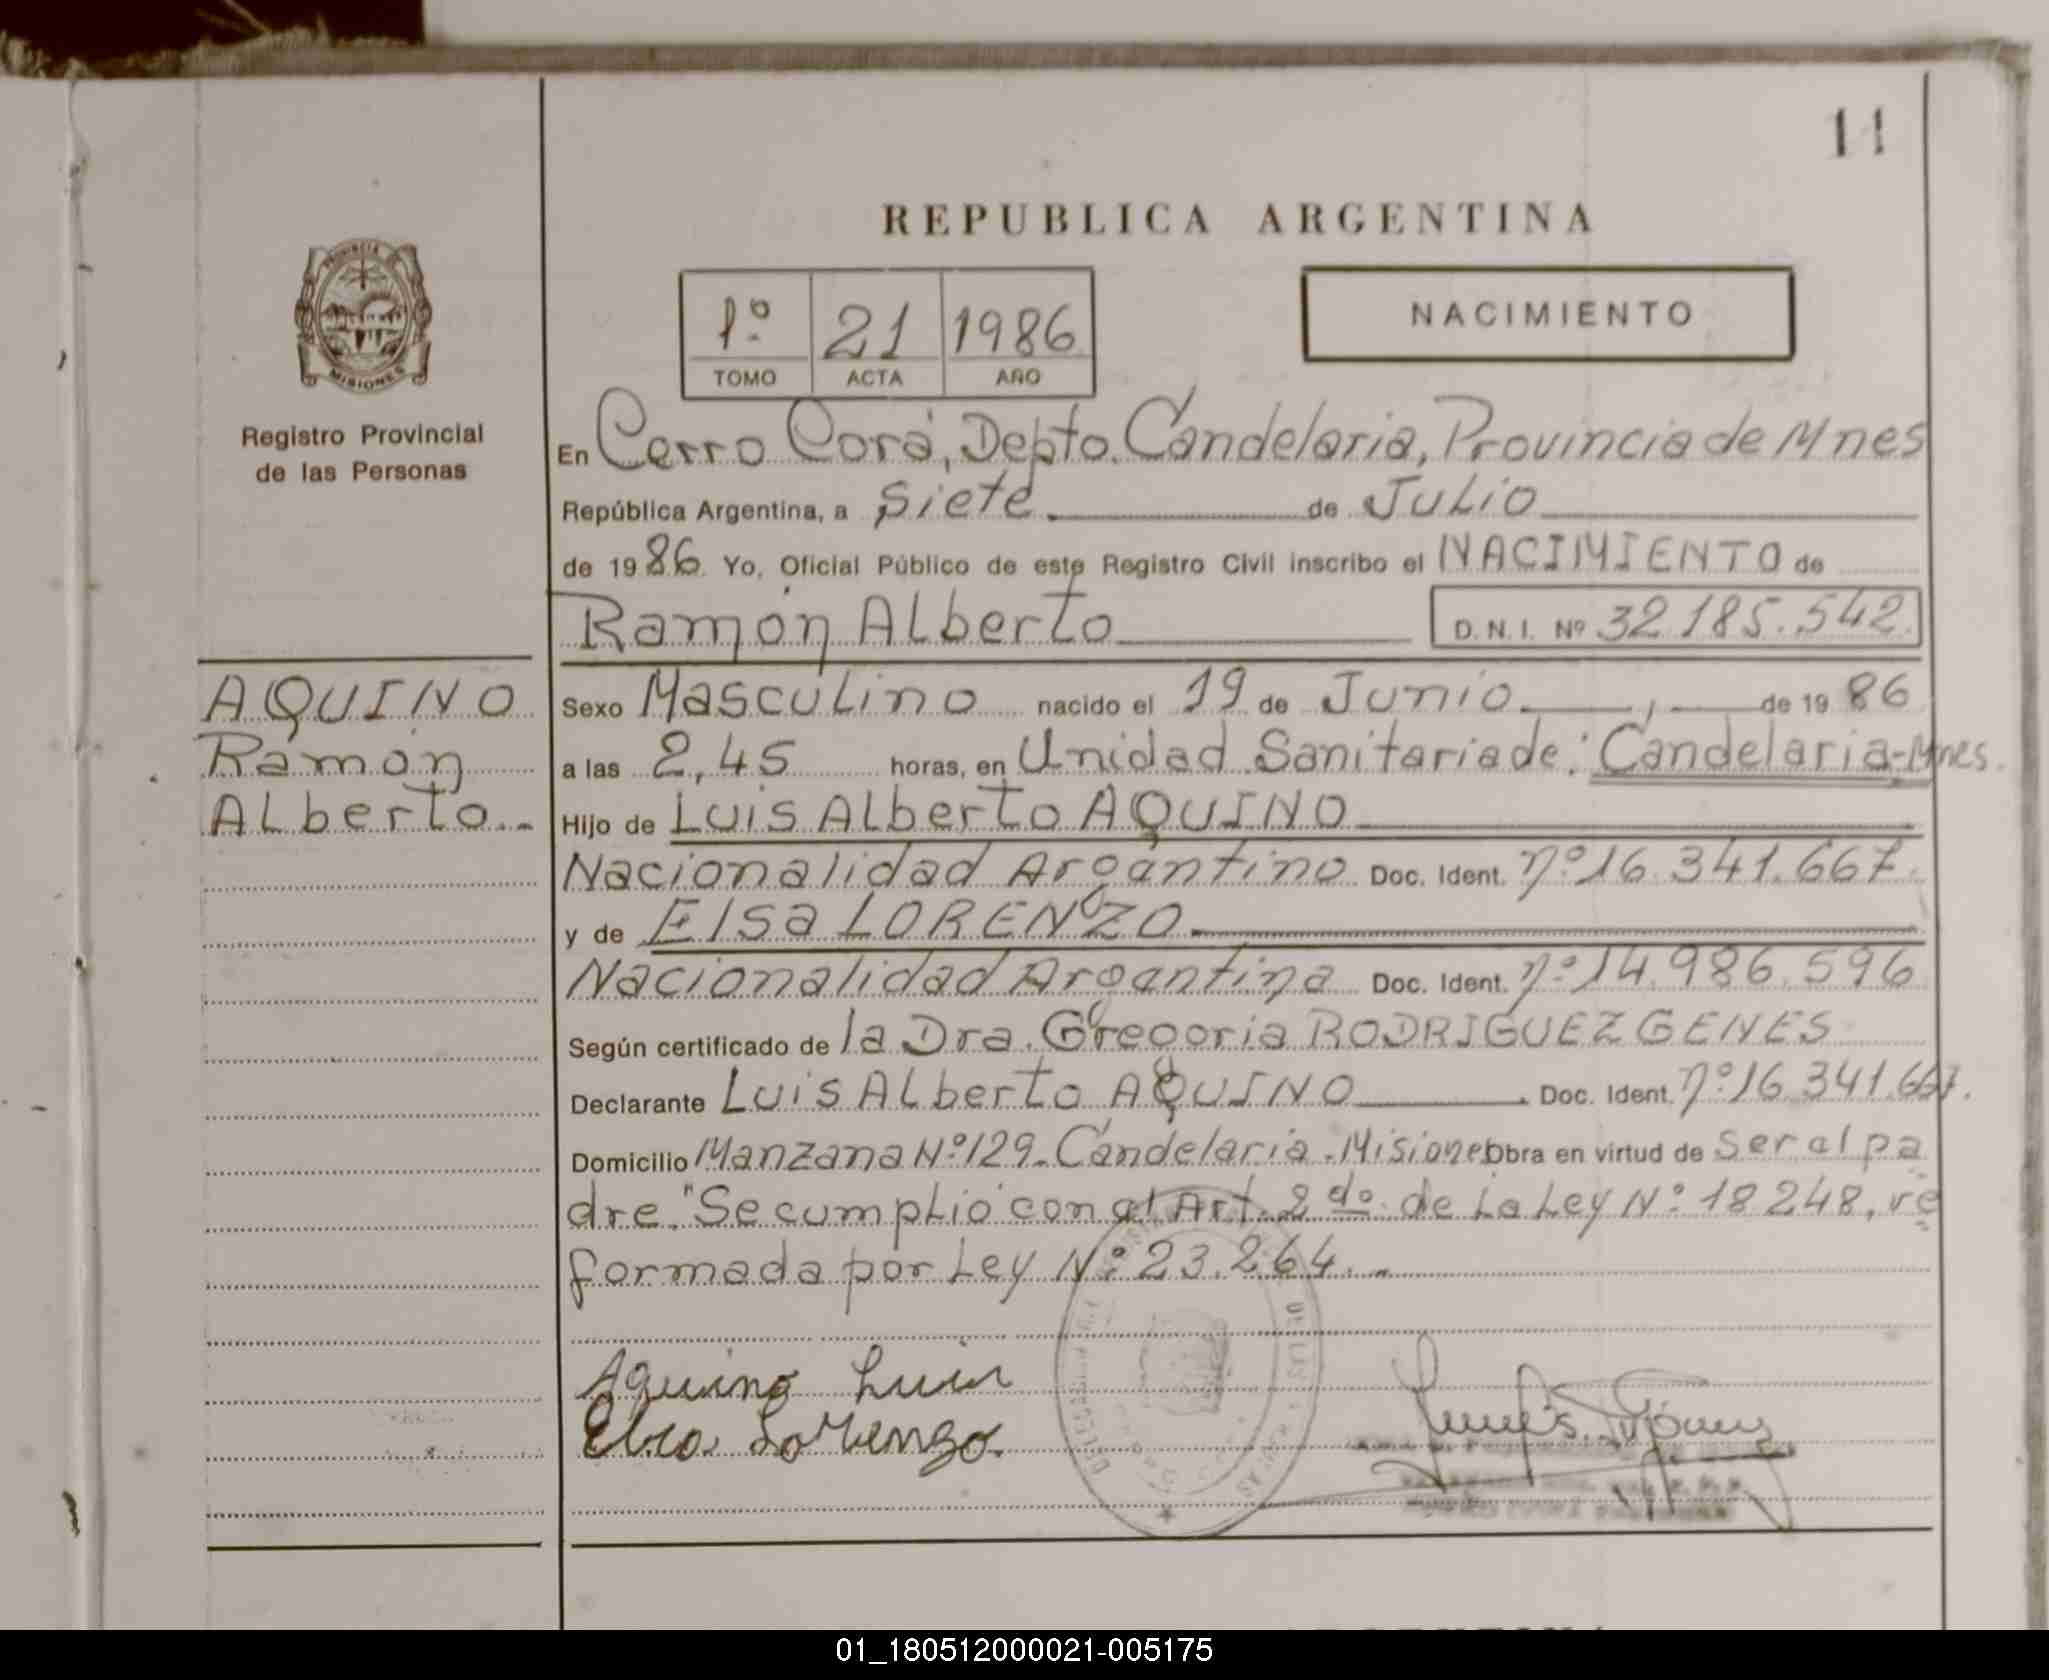 11
REPUBLICA ARGENTINA
PROVINCIA DE
MISIONES
Registro Provincial
de las Personas
1º 21 1986
TOMO ACTA AÑO
NACIMIENTO
En Cerro Corá, Depto. Candelaria, Provincia de Mnes
República Argentina, a siete de Julio
de 1986 Yo, Oficial Público de este Registro Civil inscribo el NACIMIENTO de
Ramón Alberto D.N.I. Nº 32.185.542.
AQUINO
Ramón
Alberto.-
Sexo Masculino nacido el 19 de Junio , de 1986
a las 2,45 horas, en Unidad Sanitaria de: Candelaria-Mnes.
Hijo de Luis Alberto AQUINO
Nacionalidad Argantino Doc. Ident. nº 16.341.667.
y de Elsa LORENZO
Nacionalidad Argantina Doc. Ident. nº 14.986.596
Según certificado de la Dra. Gregoria RODRIGUEZ GENES
Declarante Luis Alberto AQUINO Doc. Ident. nº 16.341.667.
Domicilio Manzana Nº 129- Candelaria.-Misiones Obra en virtud de ser al pa
dre. "Se cumplió con al Art. 2do. de La Ley Nº 18248, re
formada por Ley Nº 23.264.-
Aquino Luis
Elsa Lorenzo.
01_180512000021-005175